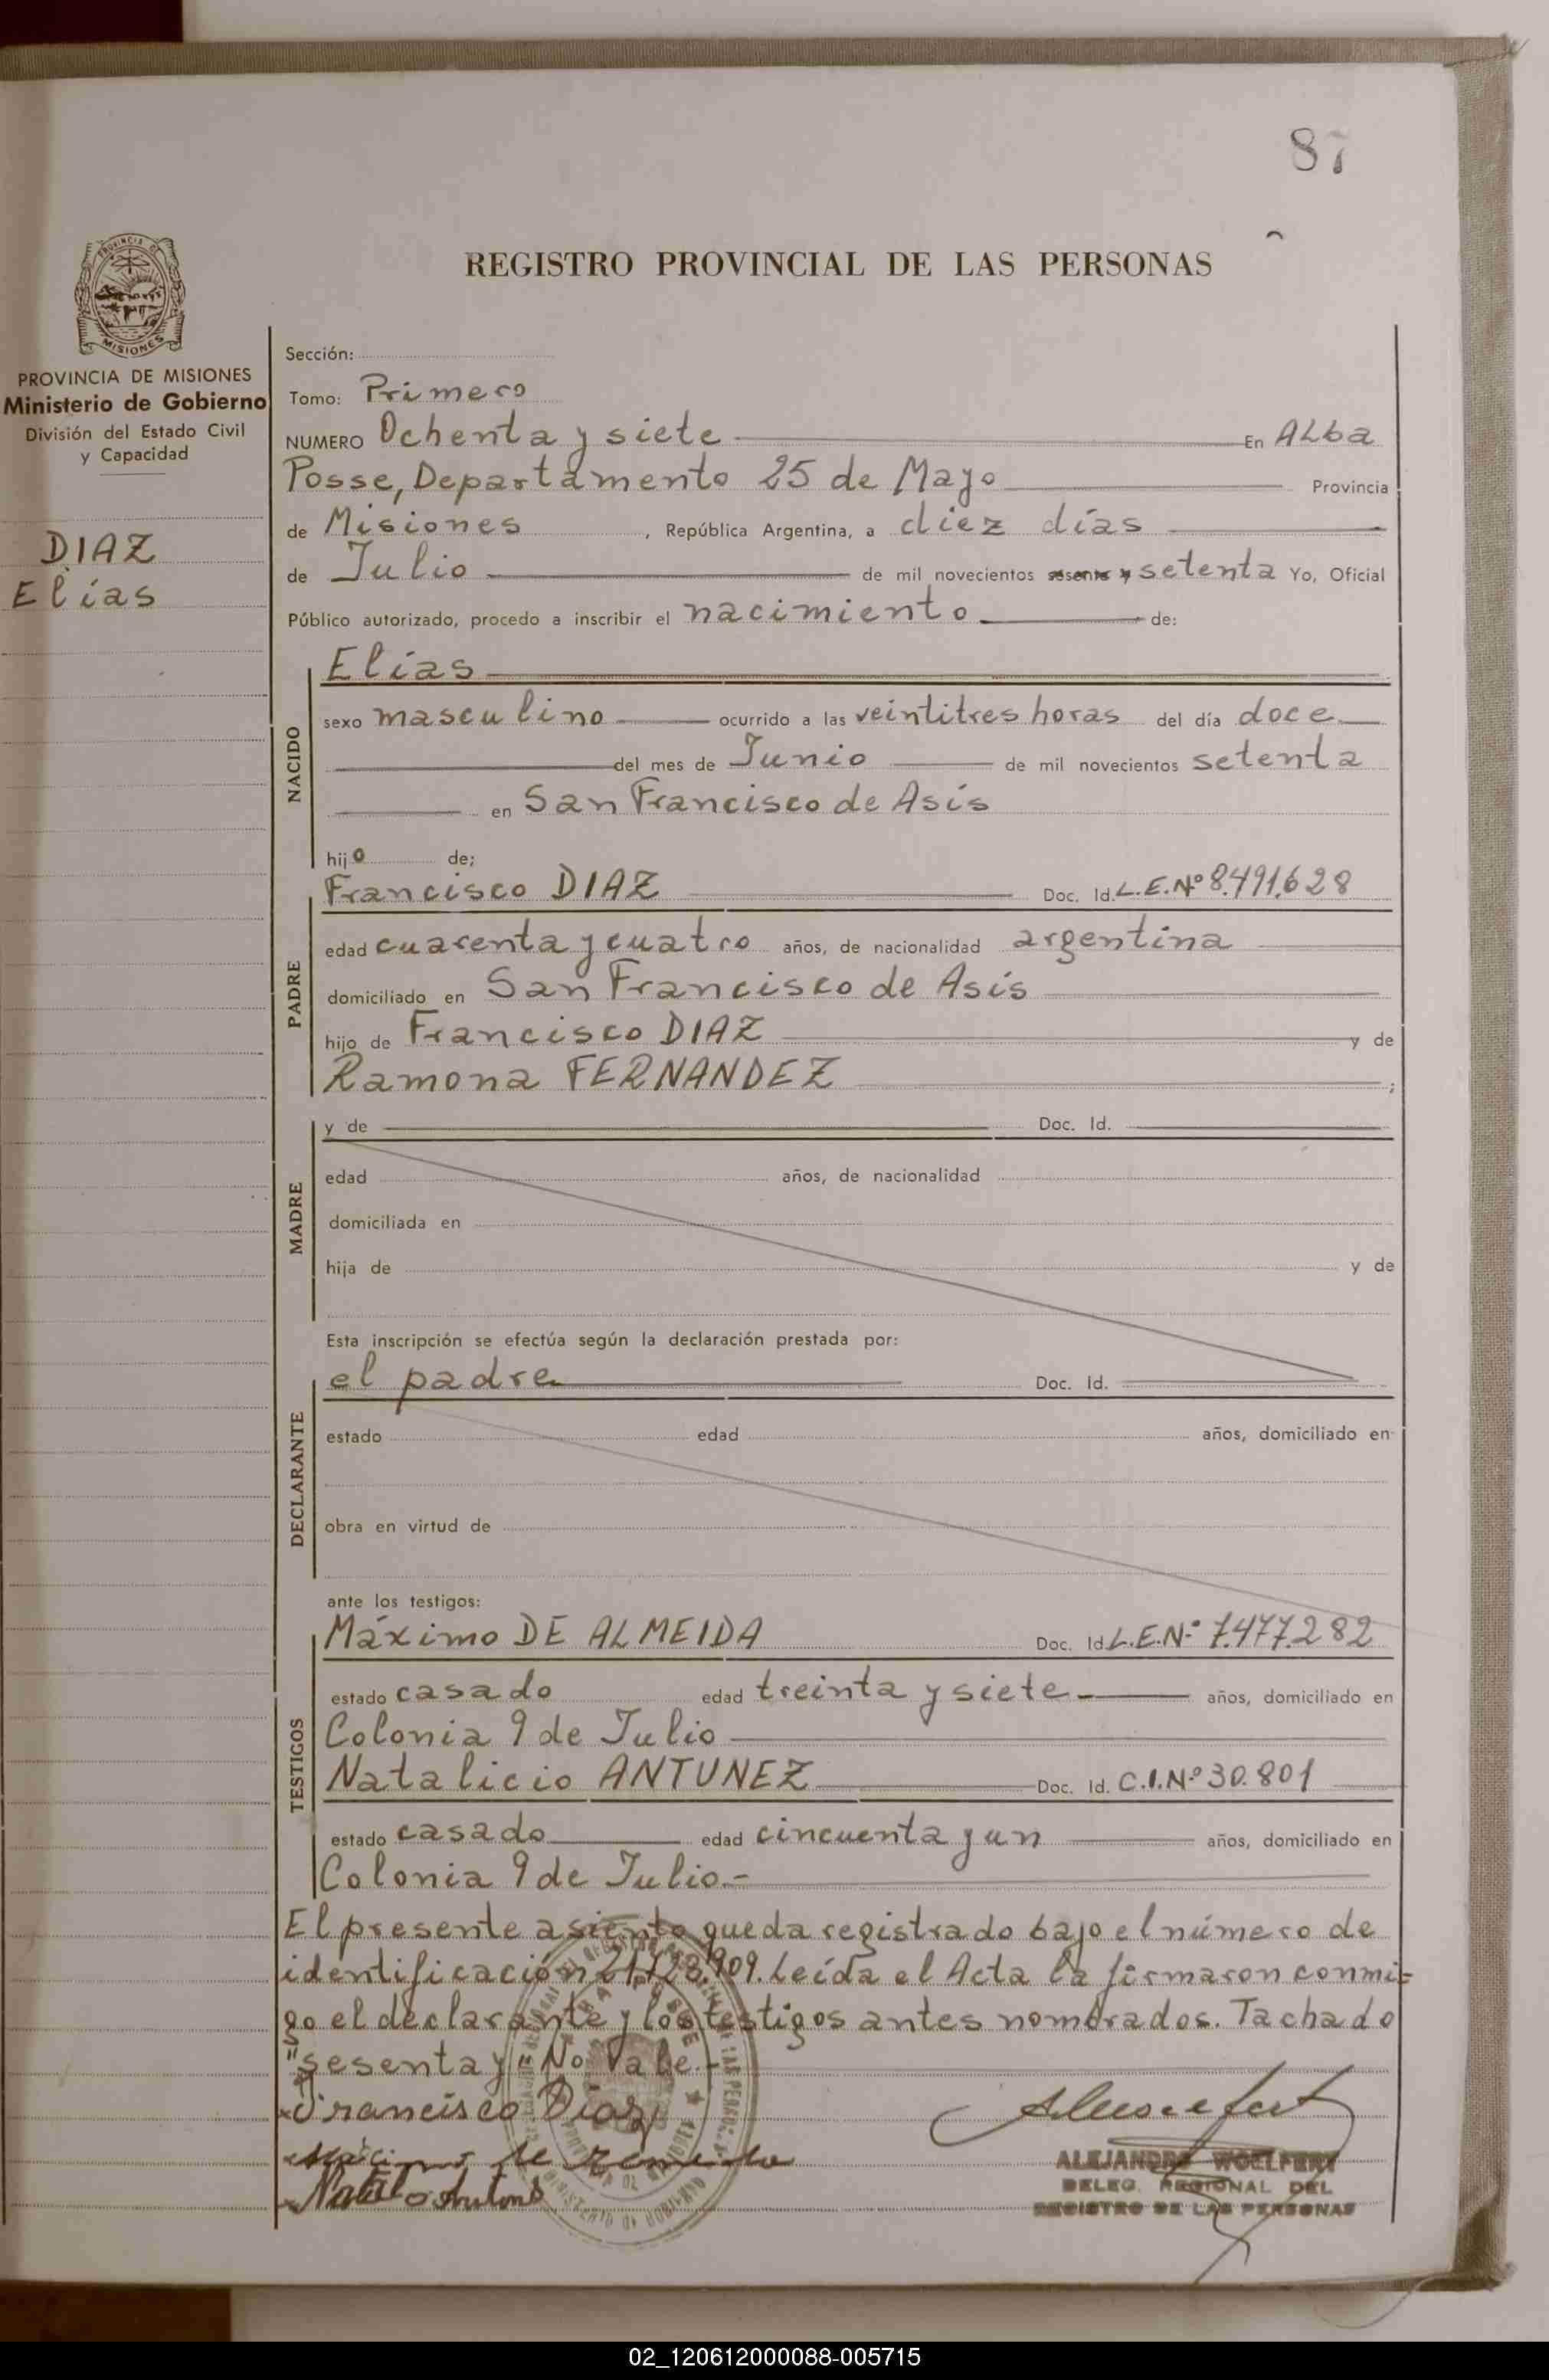 87
REGISTRO PROVINCIAL DE LAS PERSONAS
PROVINCIA DE
MISIONES
PROVINCIA DE MISIONES
Ministerio de Gobierno
División del Estado Civil
y Capacidad
DIAZ
Elías
Sección:
Tomo: Primero
NUMERO Ochenta y siete En ALba
Posse, Departamento 25 de Mayo Provincia
de Misiones , República Argentina, a diez días
de Julio de mil novecientos sesenta y setenta Yo, Oficial
Público autorizado, procedo a inscribir el nacimiento de:
NACIDO
Elías
sexo masculino ocurrido a las veintitres horas del día doce
del mes de Junio de mil novecientos setenta
en San Francisco de Asís
hijo de;
PADRE
Francisco DIAZ Doc. Id. L.E.Nº 8.491.628
edad cuarenta y cuatro años, de nacionalidad argentina
domiciliado en San Francisco de Asís
hijo de Francisco DIAZ y de
Ramona FERNANDEZ ;
MADRE
y de Doc. Id.
edad años, de nacionalidad
domiciliada en
hija de y de
Esta inscripción se efectúa según la declaración prestada por:
DECLARANTE
el padre Doc. Id.
estado edad años, domiciliado en
obra en virtud de
ante los testigos:
TESTIGOS
Máximo DE ALMEIDA Doc. Id L.E.Nº 7.477.282
estado casado edad treinta y siete.- años, domiciliado en
Colonia 9 de Julio
Natalicio ANTUNEZ Doc. Id. C.I.Nº 30.801
estado casado edad cincuenta y un años, domiciliado en
Colonia 9 de Julio.-
El presente asiento queda registrado bajo el número de
identificación Leída el Acta la firmaron conmi=
go el declarante y los testigos antes nombrados. Tachado
"sesenta y" No Vale.-
Francisco Díaz
ALEJANDRO WOELFERT
DELEG. REGIONAL DEL
REGISTRO DE LAS PERSONAS
02_120612000088-005715